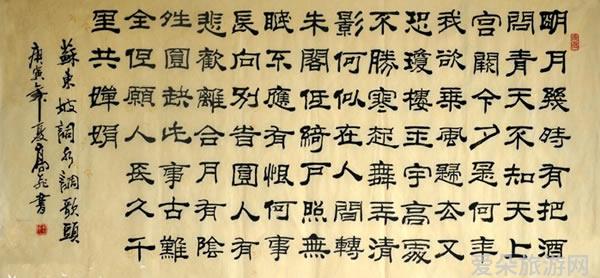 明月幾時有把酒
問青天不知天上
宮闕今夕是何年
我欲乘風歸去又
恐瓊樓玉宇高處
不勝寒起舞弄清
影何似在人間轉
朱閣低綺戶照無
眠不應有恨何事
長向別旹圓人有
悲歡離合月有陰
夝圓缺此事古難
全但願人長久千
里共嬋娟
蘇東坡詞水調歌頭
庚寅年夏書
爱朵旅游网